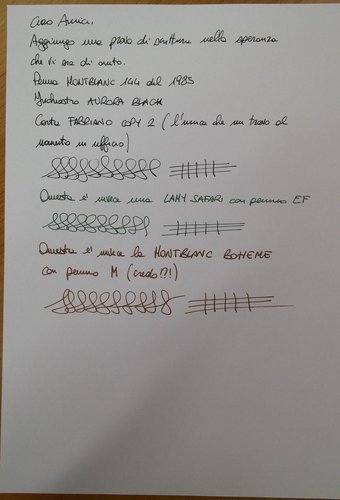 Ciao Amici,
Aggiungo una prova di scrittura nella speranza
che vi sia di aiuto.
Penna MONTBLANC 144 del 1985
Inchiostro AURORA BLACK
Carta FABRIANO COPY 2 (l'unica che mi trovo al
momento in ufficio)
Questa è invece una LAMY SAFARI con pennino EF
Questa è invece la MONTBLANC BOHEME
con pennino M (credo!?!)